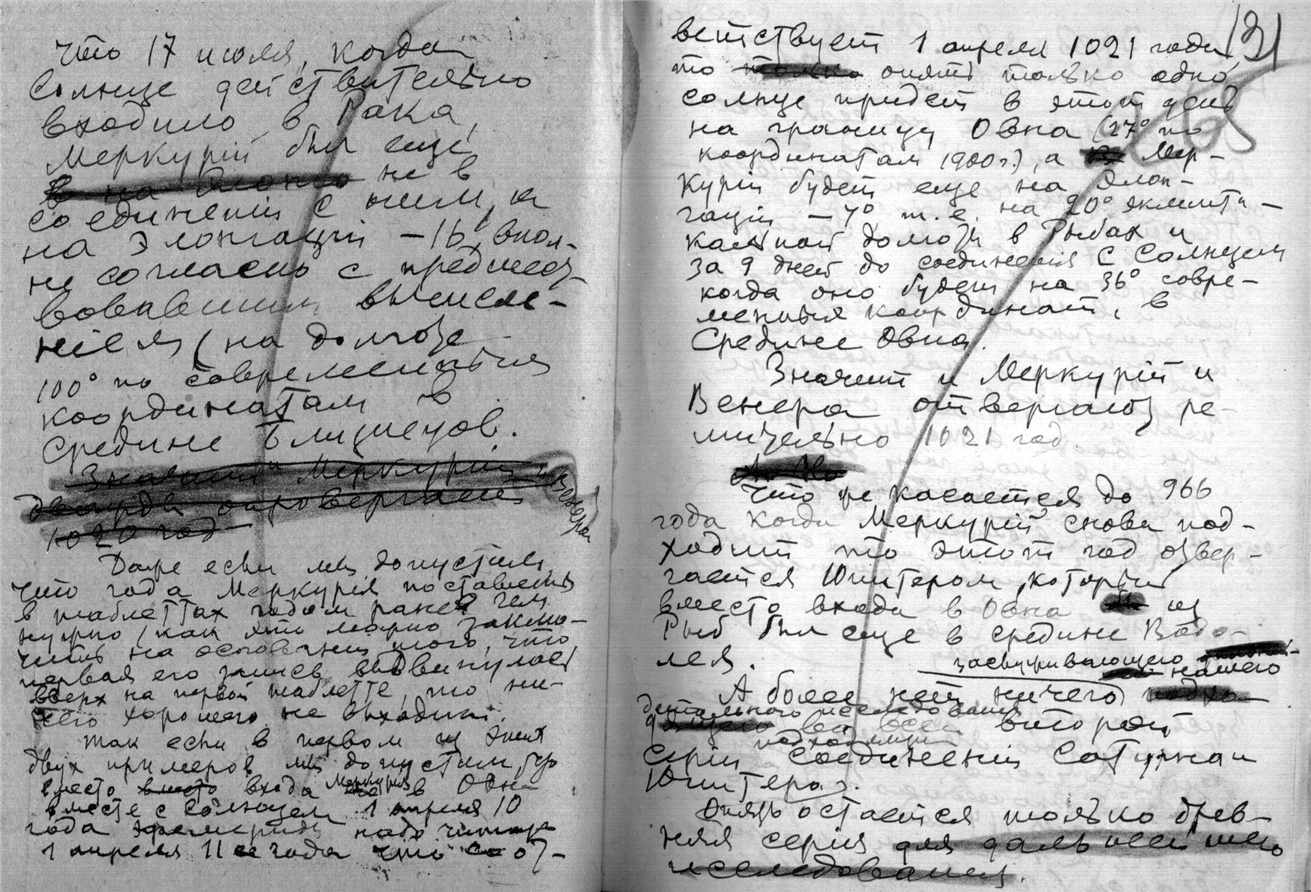 что 17 июля, когда
Солнце действительно
входило в Рака,
Меркурій был еще
не в
соединеніи с ним, а
на Элонгаціи –16°, впол-
не согласно с предшест-
вовавшим вычисле-
ніем (на долготе
100° по современным
координатам в
средине Близнецов.
Значит и Меркурій и Венера
дважды опровергает
1020 год
Даже если мы допустим,
что года Меркурія поставлены
в таблеттах годом ранее чем
нужно (как это можно заклю-
чить на основаніи того, что
первая его запись выдвинулась
вверх на первой таблетте, то ни-
чего хорошего не выходит.
Так если в первом из этих
двух примеров мы допустим, что
вместо входа Меркурія в Овна
вместе с Солнцем 1 апреля 10
года надо читать
1 апреля 11 года что соот-
131
ветствует 1 апреля 1021 года,
то опять только одно
солнце придет в этот день
на границу Овна (17° по
координатам 1900 г.), а Мер-
курій будет еще на Элон-
гаціи –7° т.е. на 20° эклипти-
кальной долготы в Рыбах и
за 9 дней до соединенія с Солнцем
когда оно будет на 36° совре-
менных координат, в
Средине Овна.
Значит и Меркурій и
Венера отвергают ре-
шительно 1021 год
Что же касается до 966
года когда Меркурій снова под-
ходит то этот год отвер-
гается Юпитером, который
вместо входа в Овна из
Рыб был еще в средине Водо-
лея.
заслуживающего нашего
А более нет ничего
детального изследованія
во всей второй
подходящего
Серіи соединеній Сатурна и
Юпитера.
Опять остается только древ-
няя серія для дальнейшего
изследованія.